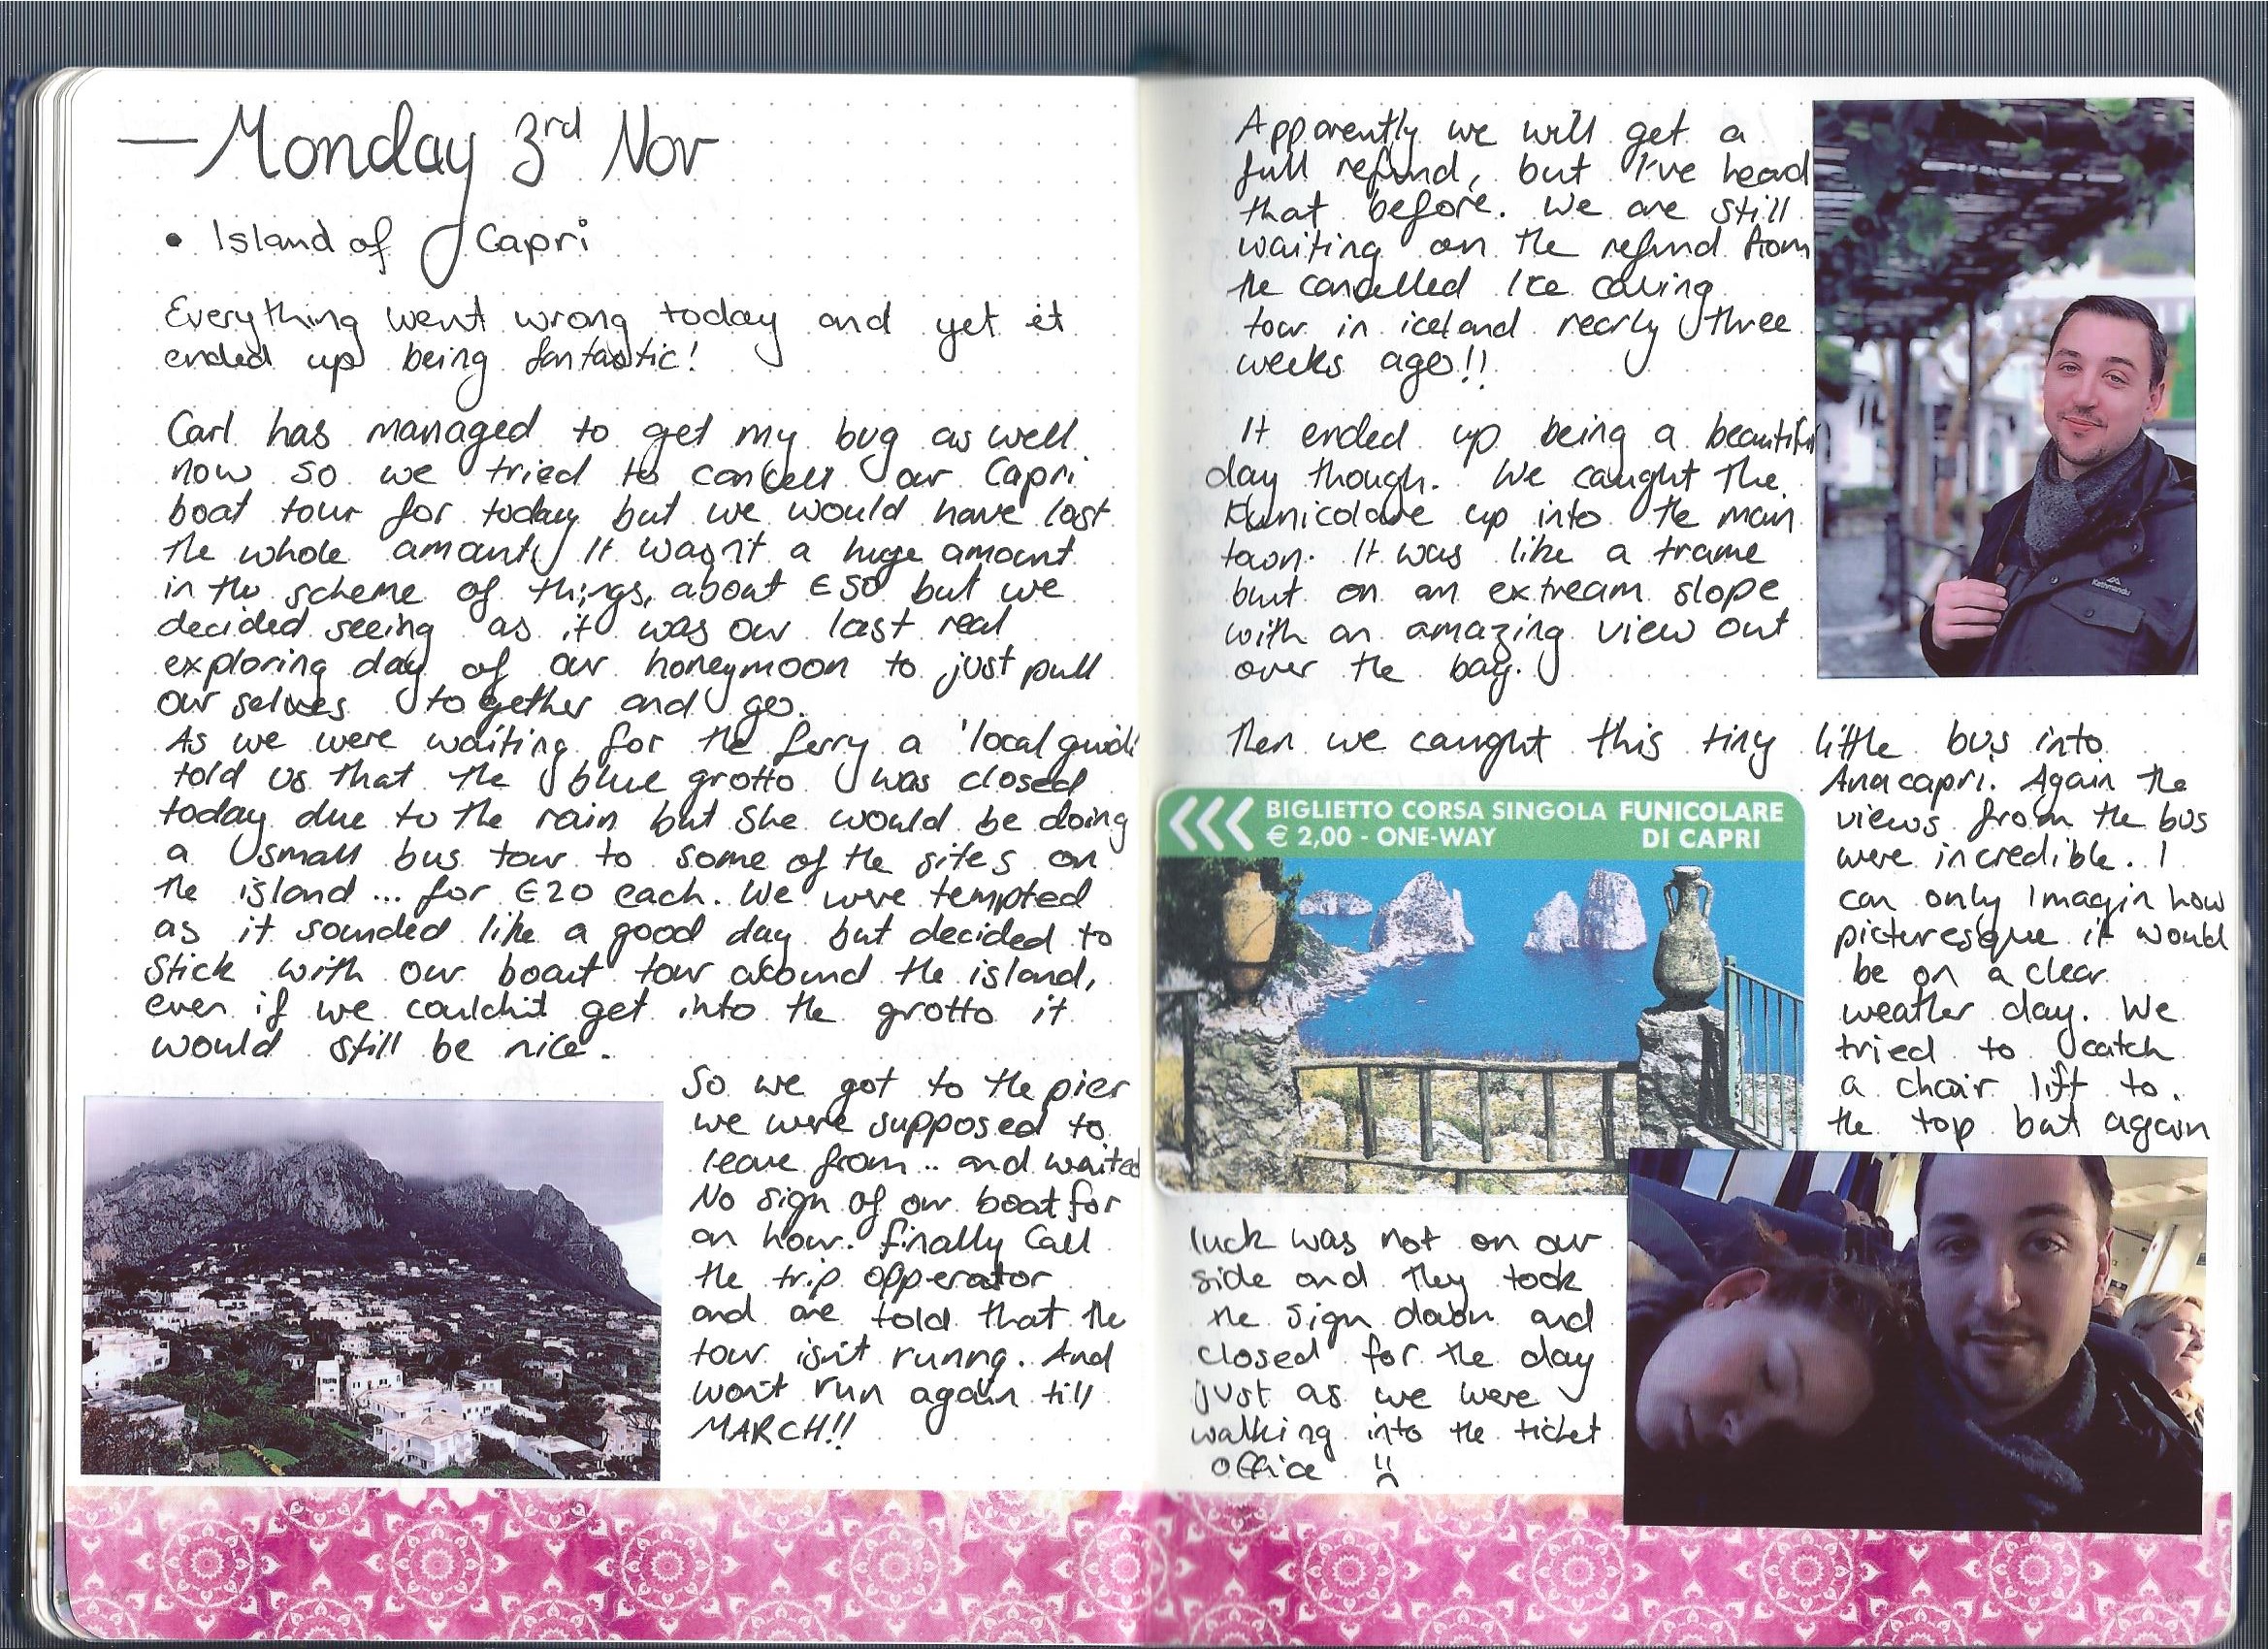 Monday 3rd Nov
• Island of Capri
Everything went wrong today and yet it
ended up being fantastic!
Carl has managed to get my bug as well
now so we tried to cancell our Capri
boat tour for today but we would have lost
the whole amount. It wasn't a huge amount
in the scheme of things, about €50 but we
decided seeing as it was our last real
exploring day of our honeymoon to just pull
our selves together and go.
As we were waiting for the ferry a 'local guide'
told us that the blue grotto was closed
today due to the rain but she would be doing
a small bus tour to some of the sites on
the island... for €20 each. We were tempted
as it sounded like a good day but decided to
stick with our boat tour around the island,
even if we couldn't get into the grotto it
would still be nice.
So we got to the pier
we were supposed to
leave from .. and waited
No sign of our boat for
an hour. finally Call
the trip opperator
and are told that the
tour isn't runng. And
won't run again till
MARCH!!
Apparently we will get a
full refund, but I've head
that before. We are still
waiting on the refund from
the cancelled Ice caving
tour in iceland nearly three
weeks ago!!
It ended up being a beautiful
day though. We caught the
Funicolare up into the main
town. It was like a trame
but on an extream slope
with an amazing view out
over the bay.
Then we caught this tiny little bus into
Anacapri. Again the
views from the bus
were incredible. I
can only Imagin how
picturesque it would
be on a clear
weather day. We
tried to catch
a chair lift to
the top but again
BIGLIETTO CORSA SINGOLA FUNICOLARE
€ 2,00 - ONE-WAY DI CAPRI
luck was not on our
side and they took
the sign down and
closed for the day
just as we were
walking into the ticket
office
Kathmandu